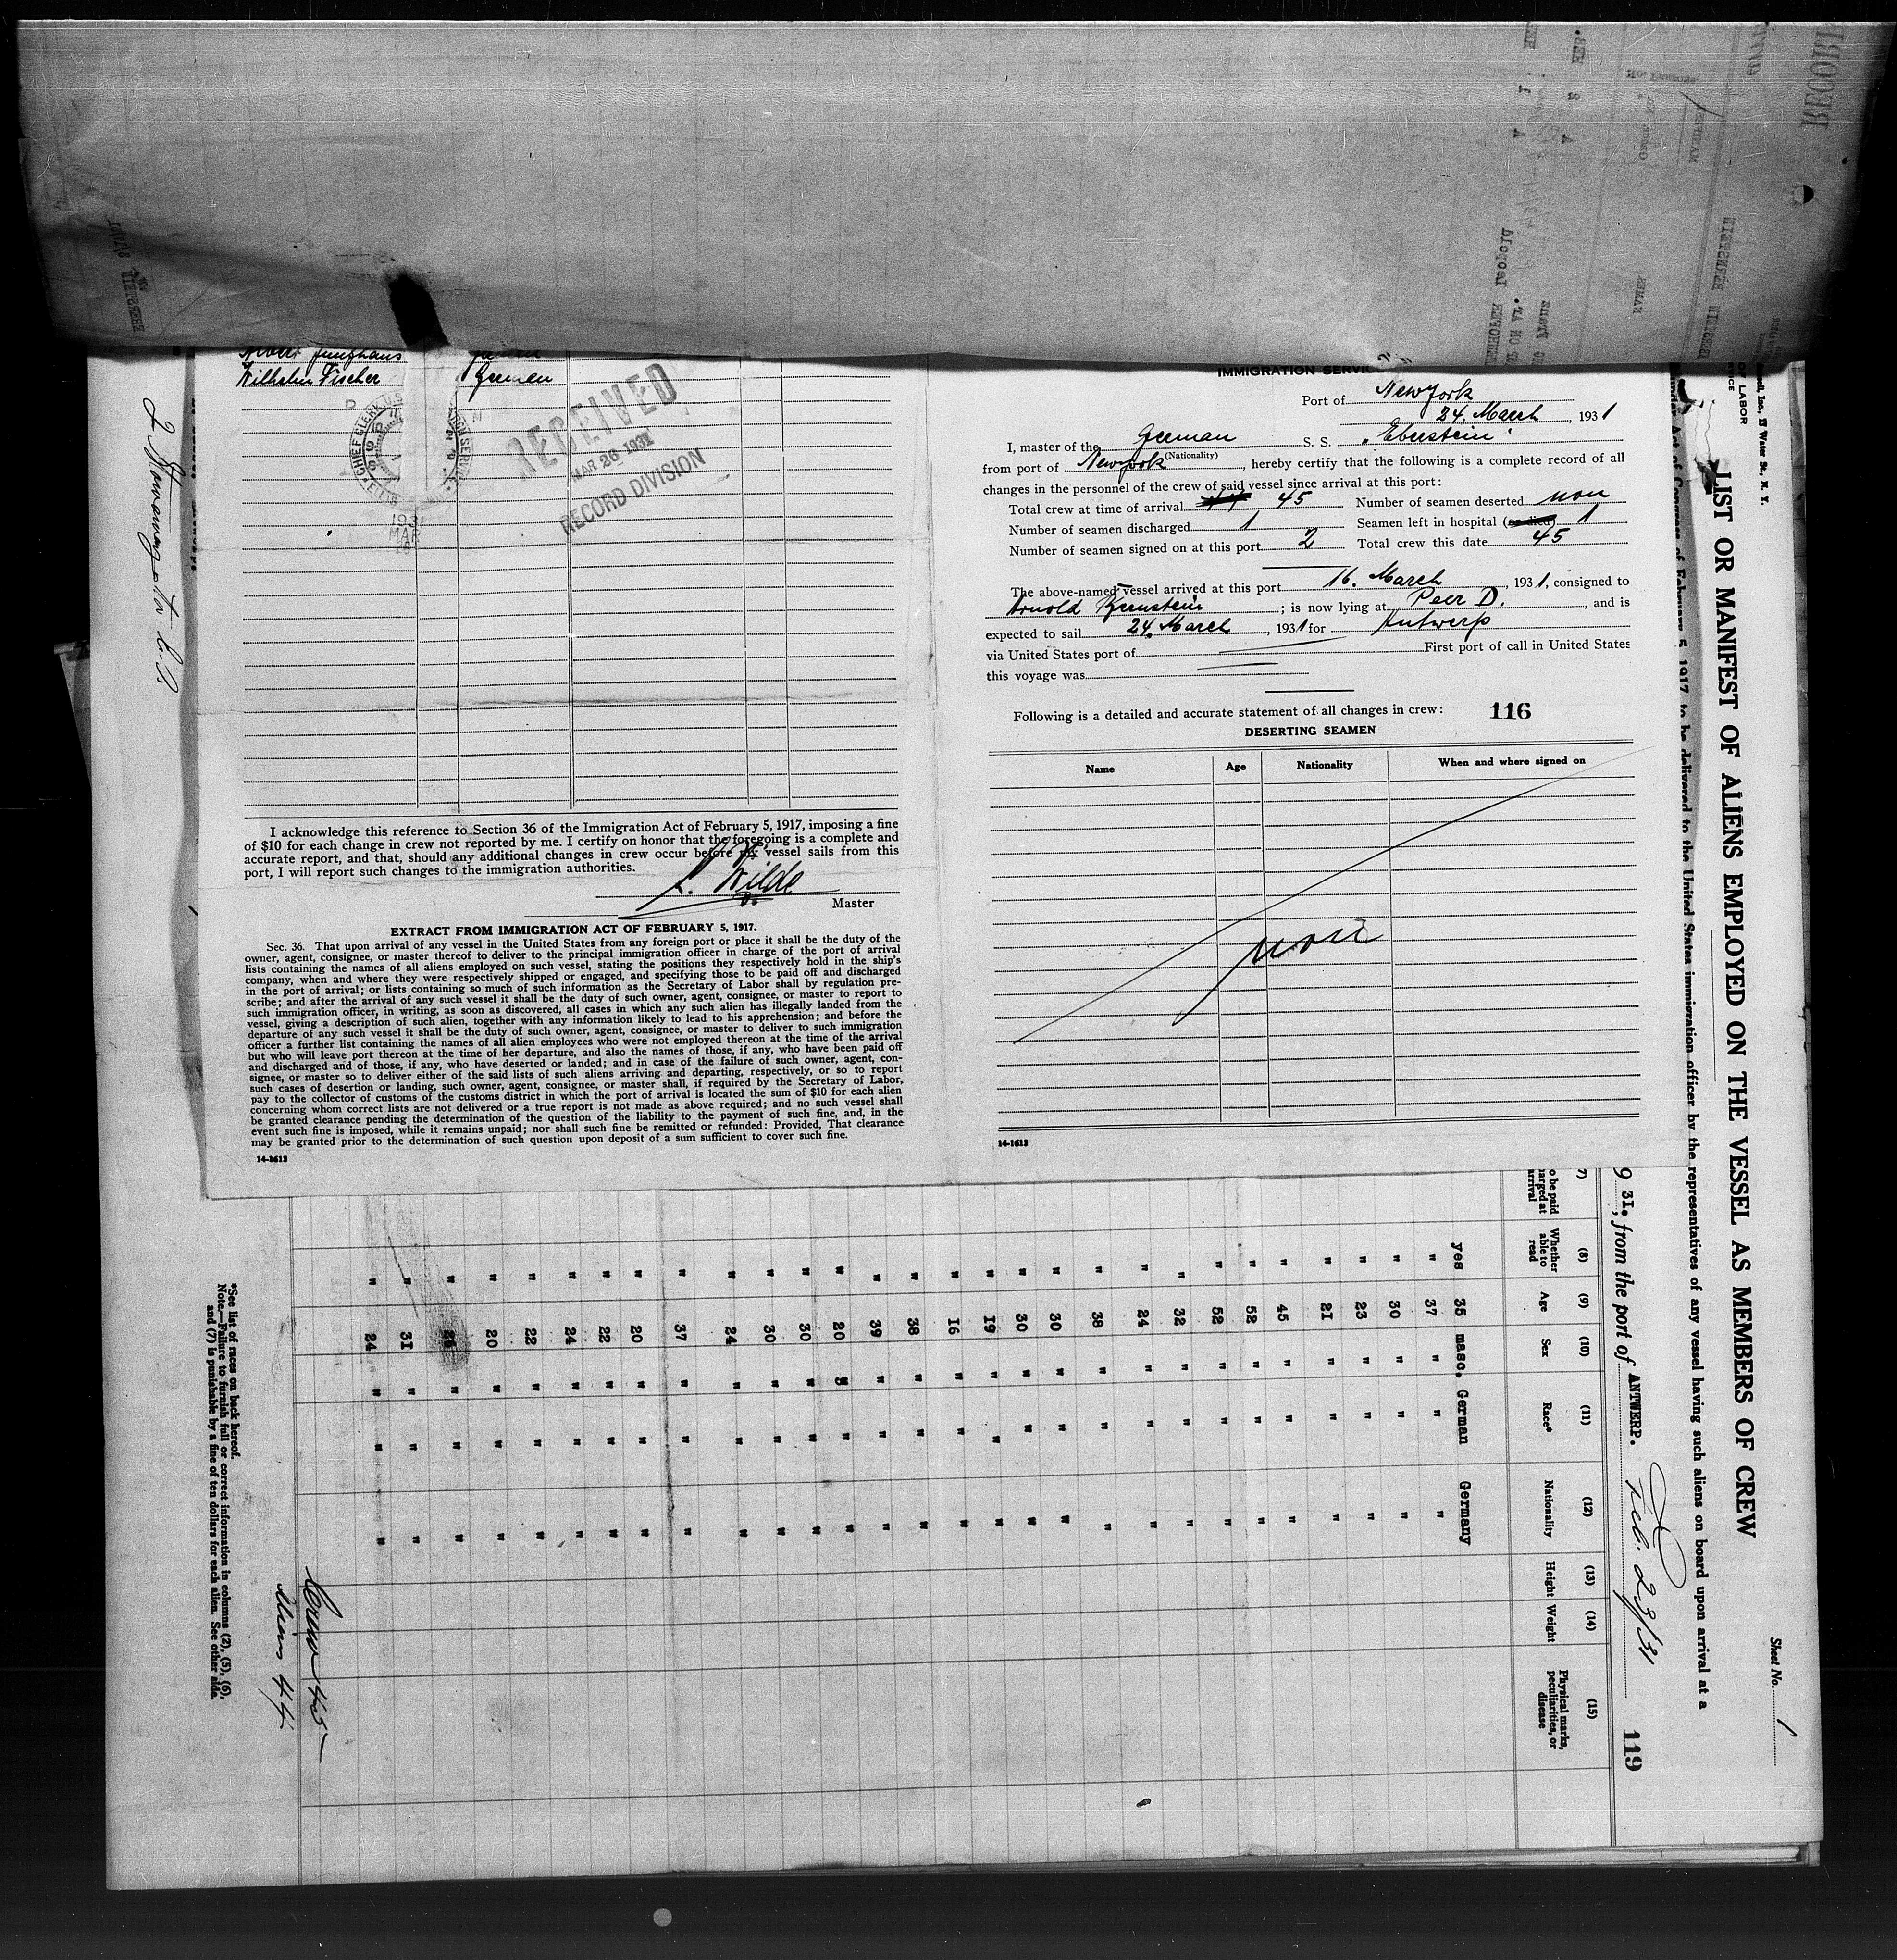 Wilhelm Fischer German
RECEIVED
MAR 26 1931
RECORD DIVISION
CHIEF CLERK U.S.
1931
MAR
I acknowledge this reference to Section 36 of the Immigration Act of February 5, 1917, imposing a fine
of $10 for each change in crew not reported by me. I certify on honor that the foregoing is a complete and
accurate report, and that, should any additional changes in crew occur before my vessel sails from this
port, I will report such changes to the immigration authorities.
Wilde
Master
EXTRACT FROM IMMIGRATION ACT OF FEBRUARY 5, 1917.
Sec. 36. That upon arrival of any vessel in the United States from any foreign port or place it shall be the duty of the
owner, agent, consignee, or master thereof to deliver to the principal immigration officer in charge of the port of arrival
lists containing the names of all aliens employed on such vessel, stating the positions they respectively hold in the ship's
company, when and where they were respectively shipped or engaged, and specifying those to be paid off and discharged
in the port of arrival; or lists containing so much of such information as the Secretary of Labor shall by regulation pre-
scribe; and after the arrival of any such vessel it shall be the duty of such owner, agent, consignee, or master to report to
such immigration officer, in writing, as soon as discovered, all cases in which any such alien has illegally landed from the
vessel, giving a description of such alien, together with any information likely to lead to his apprehension; and before the
departure of any such vessel it shall be the duty of such owner, agent, consignee, or master to deliver to such immigration
officer a further list containing the names of all alien employees who were not employed thereon at the time of the arrival
but who will leave port thereon at the time of her departure, and also the names of those, if any, who have been paid off
and discharged and of those, if any, who have deserted or landed; and in case of the failure of such owner, agent, con-
signee, or master so to deliver either of the said lists of such aliens arriving and departing, respectively, or so to report
such cases of desertion or landing, such owner, agent, consignee, or master shall, if required by the Secretary of Labor,
pay to the collector of customs of the customs district in which the port of arrival is located the sum of $10 for each alien
concerning whom correct lists are not delivered or a true report is not made as above required; and no such vessel shall
be granted clearance pending the determination of the question of the liability to the payment of such fine, and, in the
event such fine is imposed, while it remains unpaid; nor shall such fine be remitted or refunded: Provided, That clearance
may be granted prior to the determination of such question upon deposit of a sum sufficient to cover such fine.
14-1613
IMMIGRATION SERVIC
Port of New York
24. March, 1931
I, master of the German S. S. "Eberstein"
(Nationality)
from port of Newyork, hereby certify that the following is a complete record of all
changes in the personnel of the crew of said vessel since arrival at this port:
Total crew at time of arrival 45 Number of seamen deserted non
Number of seamen discharged 1 Seamen left in hospital (or died) 1
Number of seamen signed on at this port 2 Total crew this date 45
The above-named vessel arrived at this port 16. March, 1931, consigned to
Arnold Bernstein; is now lying at Peer D., and is
expected to sail 24. March, 1931 for Antwerp
via United States port of First port of call in United States
this voyage was
Following is a detailed and accurate statement of all changes in crew: 116
DESERTING SEAMEN
Name Age Nationality When and where signed on
non
14-1613
Sheet No. 1
LIST OR MANIFEST OF ALIENS EMPLOYED ON THE VESSEL AS MEMBERS OF CREW
under Act of Congress of February 5, 1917, to be delivered to the United States immigration officer by the representatives of any vessel having such aliens on board upon arrival at a
9 31, from the port of ANTWERP. Feb. 23/31 119
(7) (8) (9) (10) (11) (12) (13) (14) (15)
o be paid
arged at
arrival
Whether
able to
read
Age
Sex
Race*
Nationality
Height
Weight
Physical marks,
peculiarities, or
disease
yes 35 masc. German Germany
" 37 " " "
" 30 " " "
" 23 " " "
" 21 " " "
" 45 " " "
" 52 " " "
" 52 " " "
" 32 " " "
" 24 " " "
" 38 " " "
" 30 " " "
" 30 " " "
" 19 " " "
" 16 " " "
" 38 " " "
" 39 " " "
" 20 " " "
" 30 " " "
" 30 " " "
" 24 " " "
" 37 " " "
" 20 " " "
" 22 " " "
" 24 " " "
" 22 " " "
" 20 " " "
" " " "
" 31 " " "
" 24 " " "
Crew 45
44
*See list of races on back hereof.
Note.—Failure to furnish full or correct information in columns (2), (5), (6),
and (7) is punishable by a fine of ten dollars for each alien. See other side.